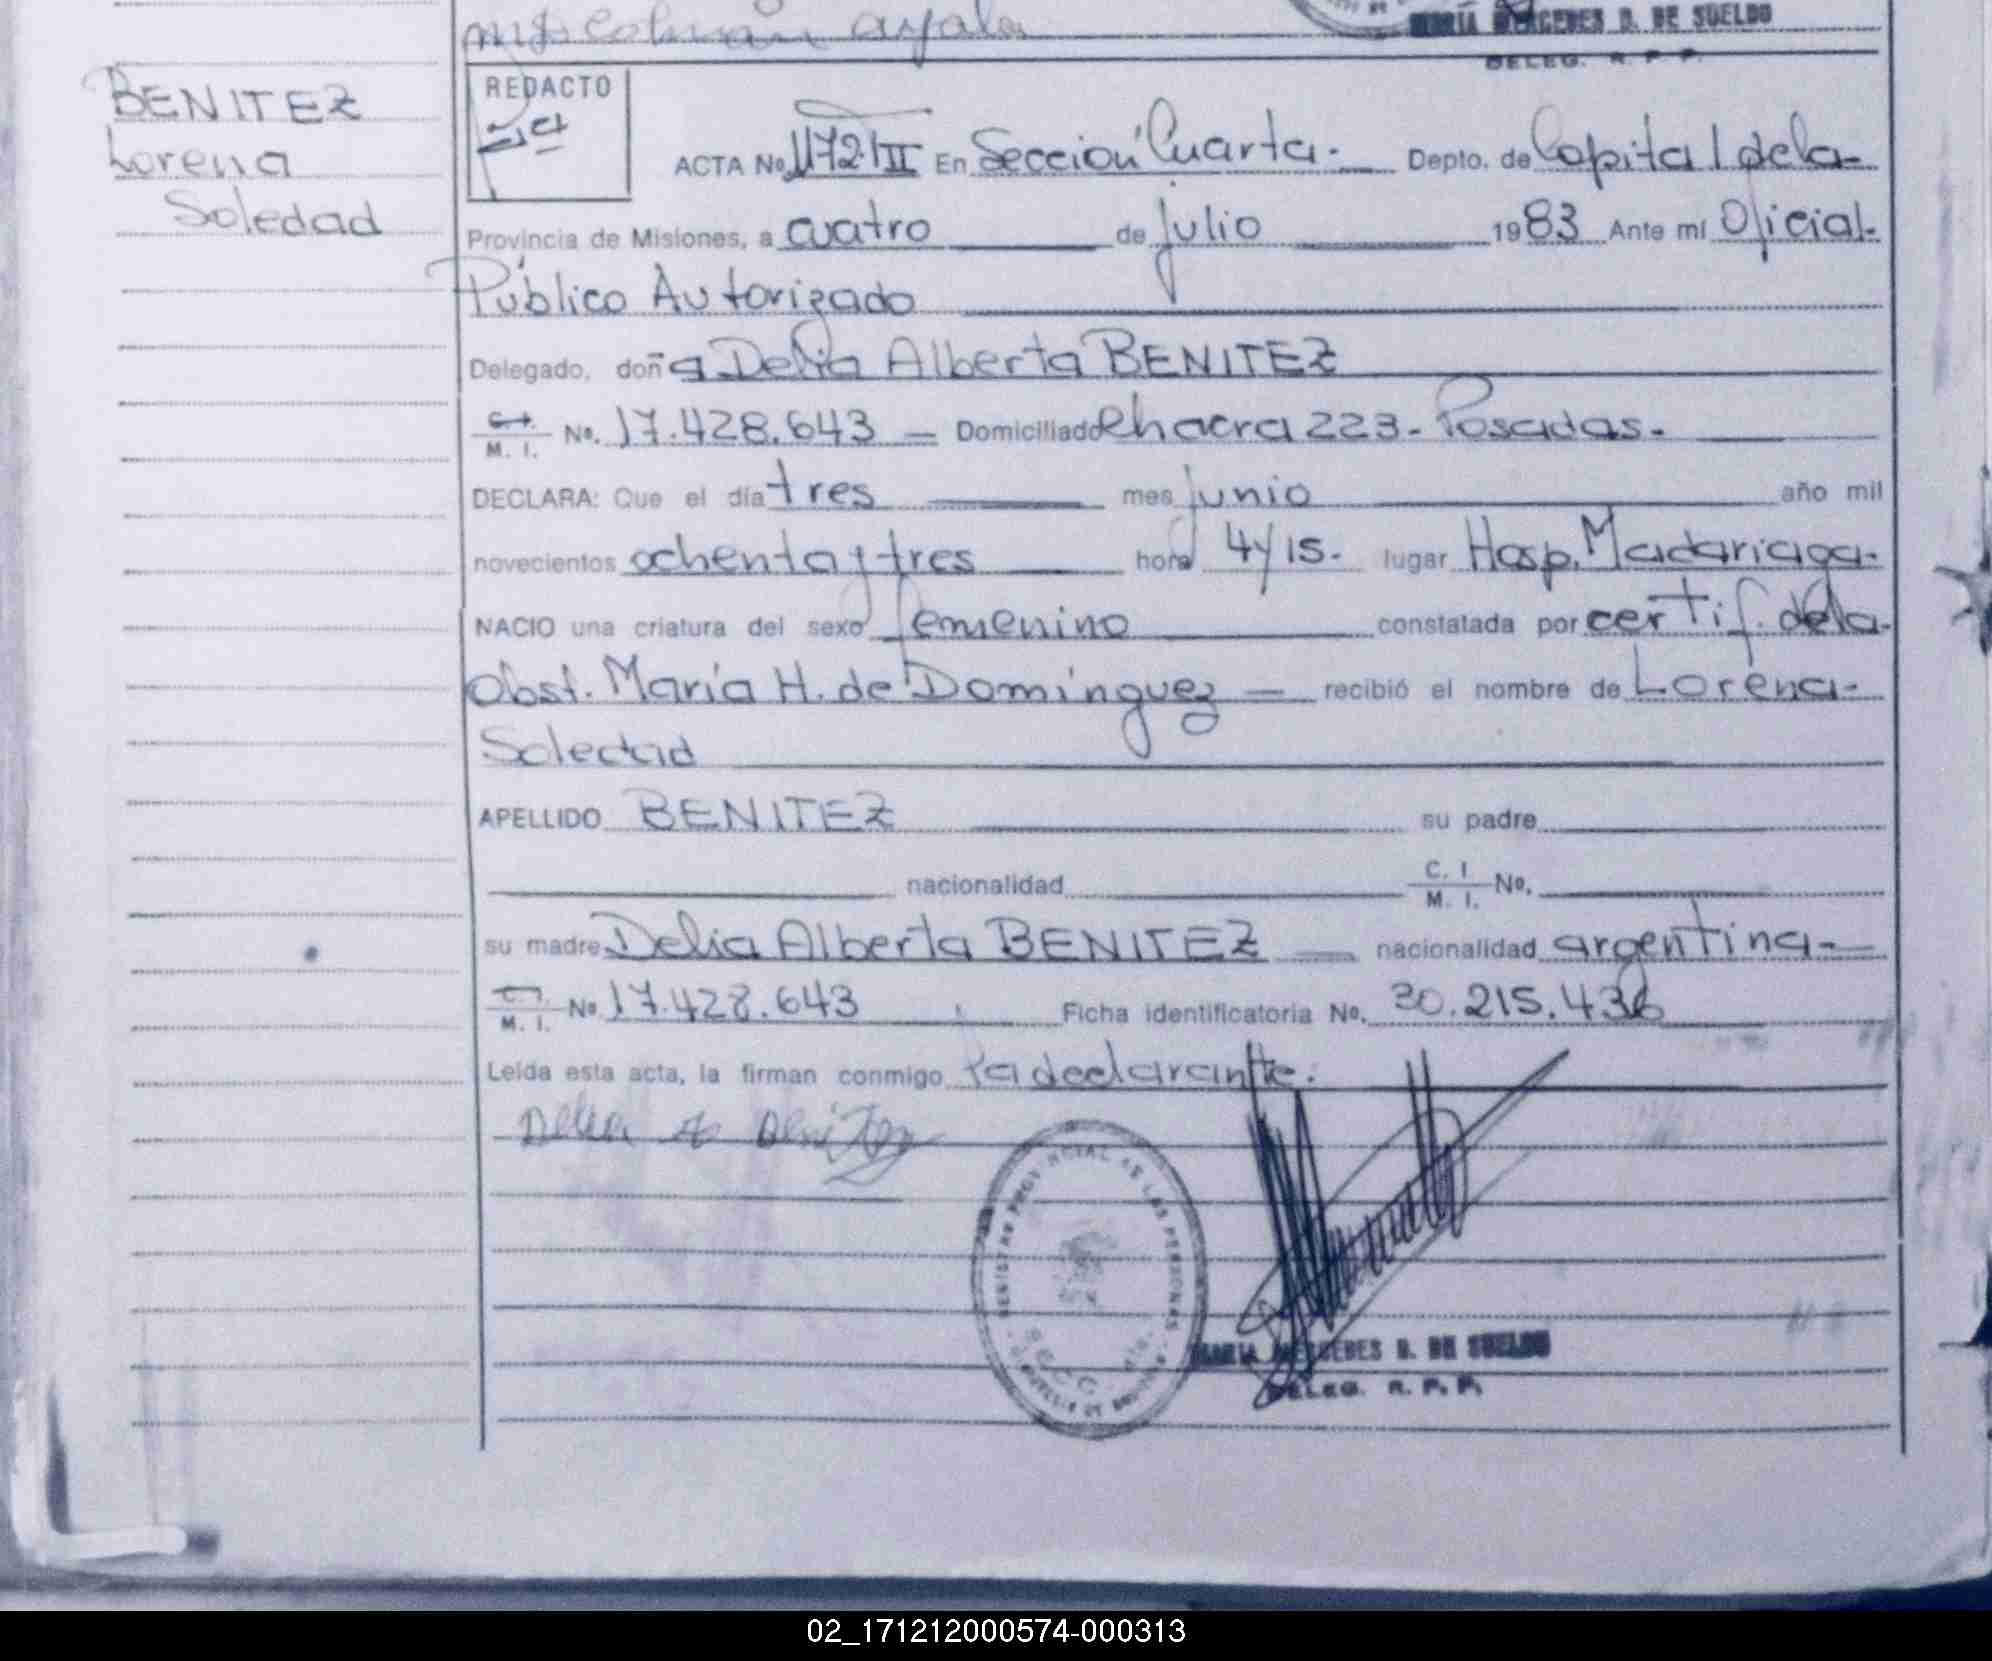 MARÍA MERCEDES D. DE SUELDO
DELEG. R. P. P.
BENITEZ
Lorena
Soledad
REDACTO
ACTA No. 1172/III En Sección Cuarta.- Depto. de Capital dela-
Provincia de Misiones, a cuatro de julio 1983 Ante mí Oficial-
Público Autorizado
Delegado, doña Delia Alberta BENITEZ
M. I. No. 17.428.643 - Domiciliado Chacra 223- Posadas.-
DECLARA: Que el día tres mes junio año mil
novecientos ochenta y tres hora 4 y 15.- lugar Hosp. Madariaga-
NACIO una criatura del sexo femenino constatada por certif. dela-
Obst. María H. de Domínguez - recibió el nombre de Lorena-
Soledad
APELLIDO BENITEZ su padre
nacionalidad C. I. M. I. No.
su madre Delia Alberta BENITEZ - nacionalidad argentina-
M. I. No 17.428.643 Ficha identificatoria No. 30.215.436
Leída esta acta, la firman conmigo la declarante.
Delia A Benitez
REGISTRO PROVINCIAL DE LAS PERSONAS
MARIA MERCEDES D. DE SUELDO
DELEG. R. P. P.
02_171212000574-000313